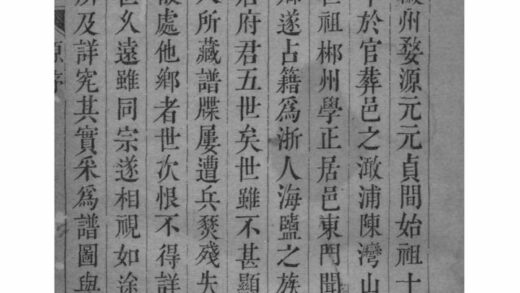 州婺源元元貞間始祖十
於官葬邑之澉浦陳灣山
世祖郴州學正居邑東門聞
遂占籍爲浙人海鹽之族
府君五世矣世雖不甚顯
所藏譜牒屢遭兵燹殘失
處他鄉者世次恨不得詳
世久遠雖同宗遂相視如途
所及詳究其實采爲譜圖與
原序